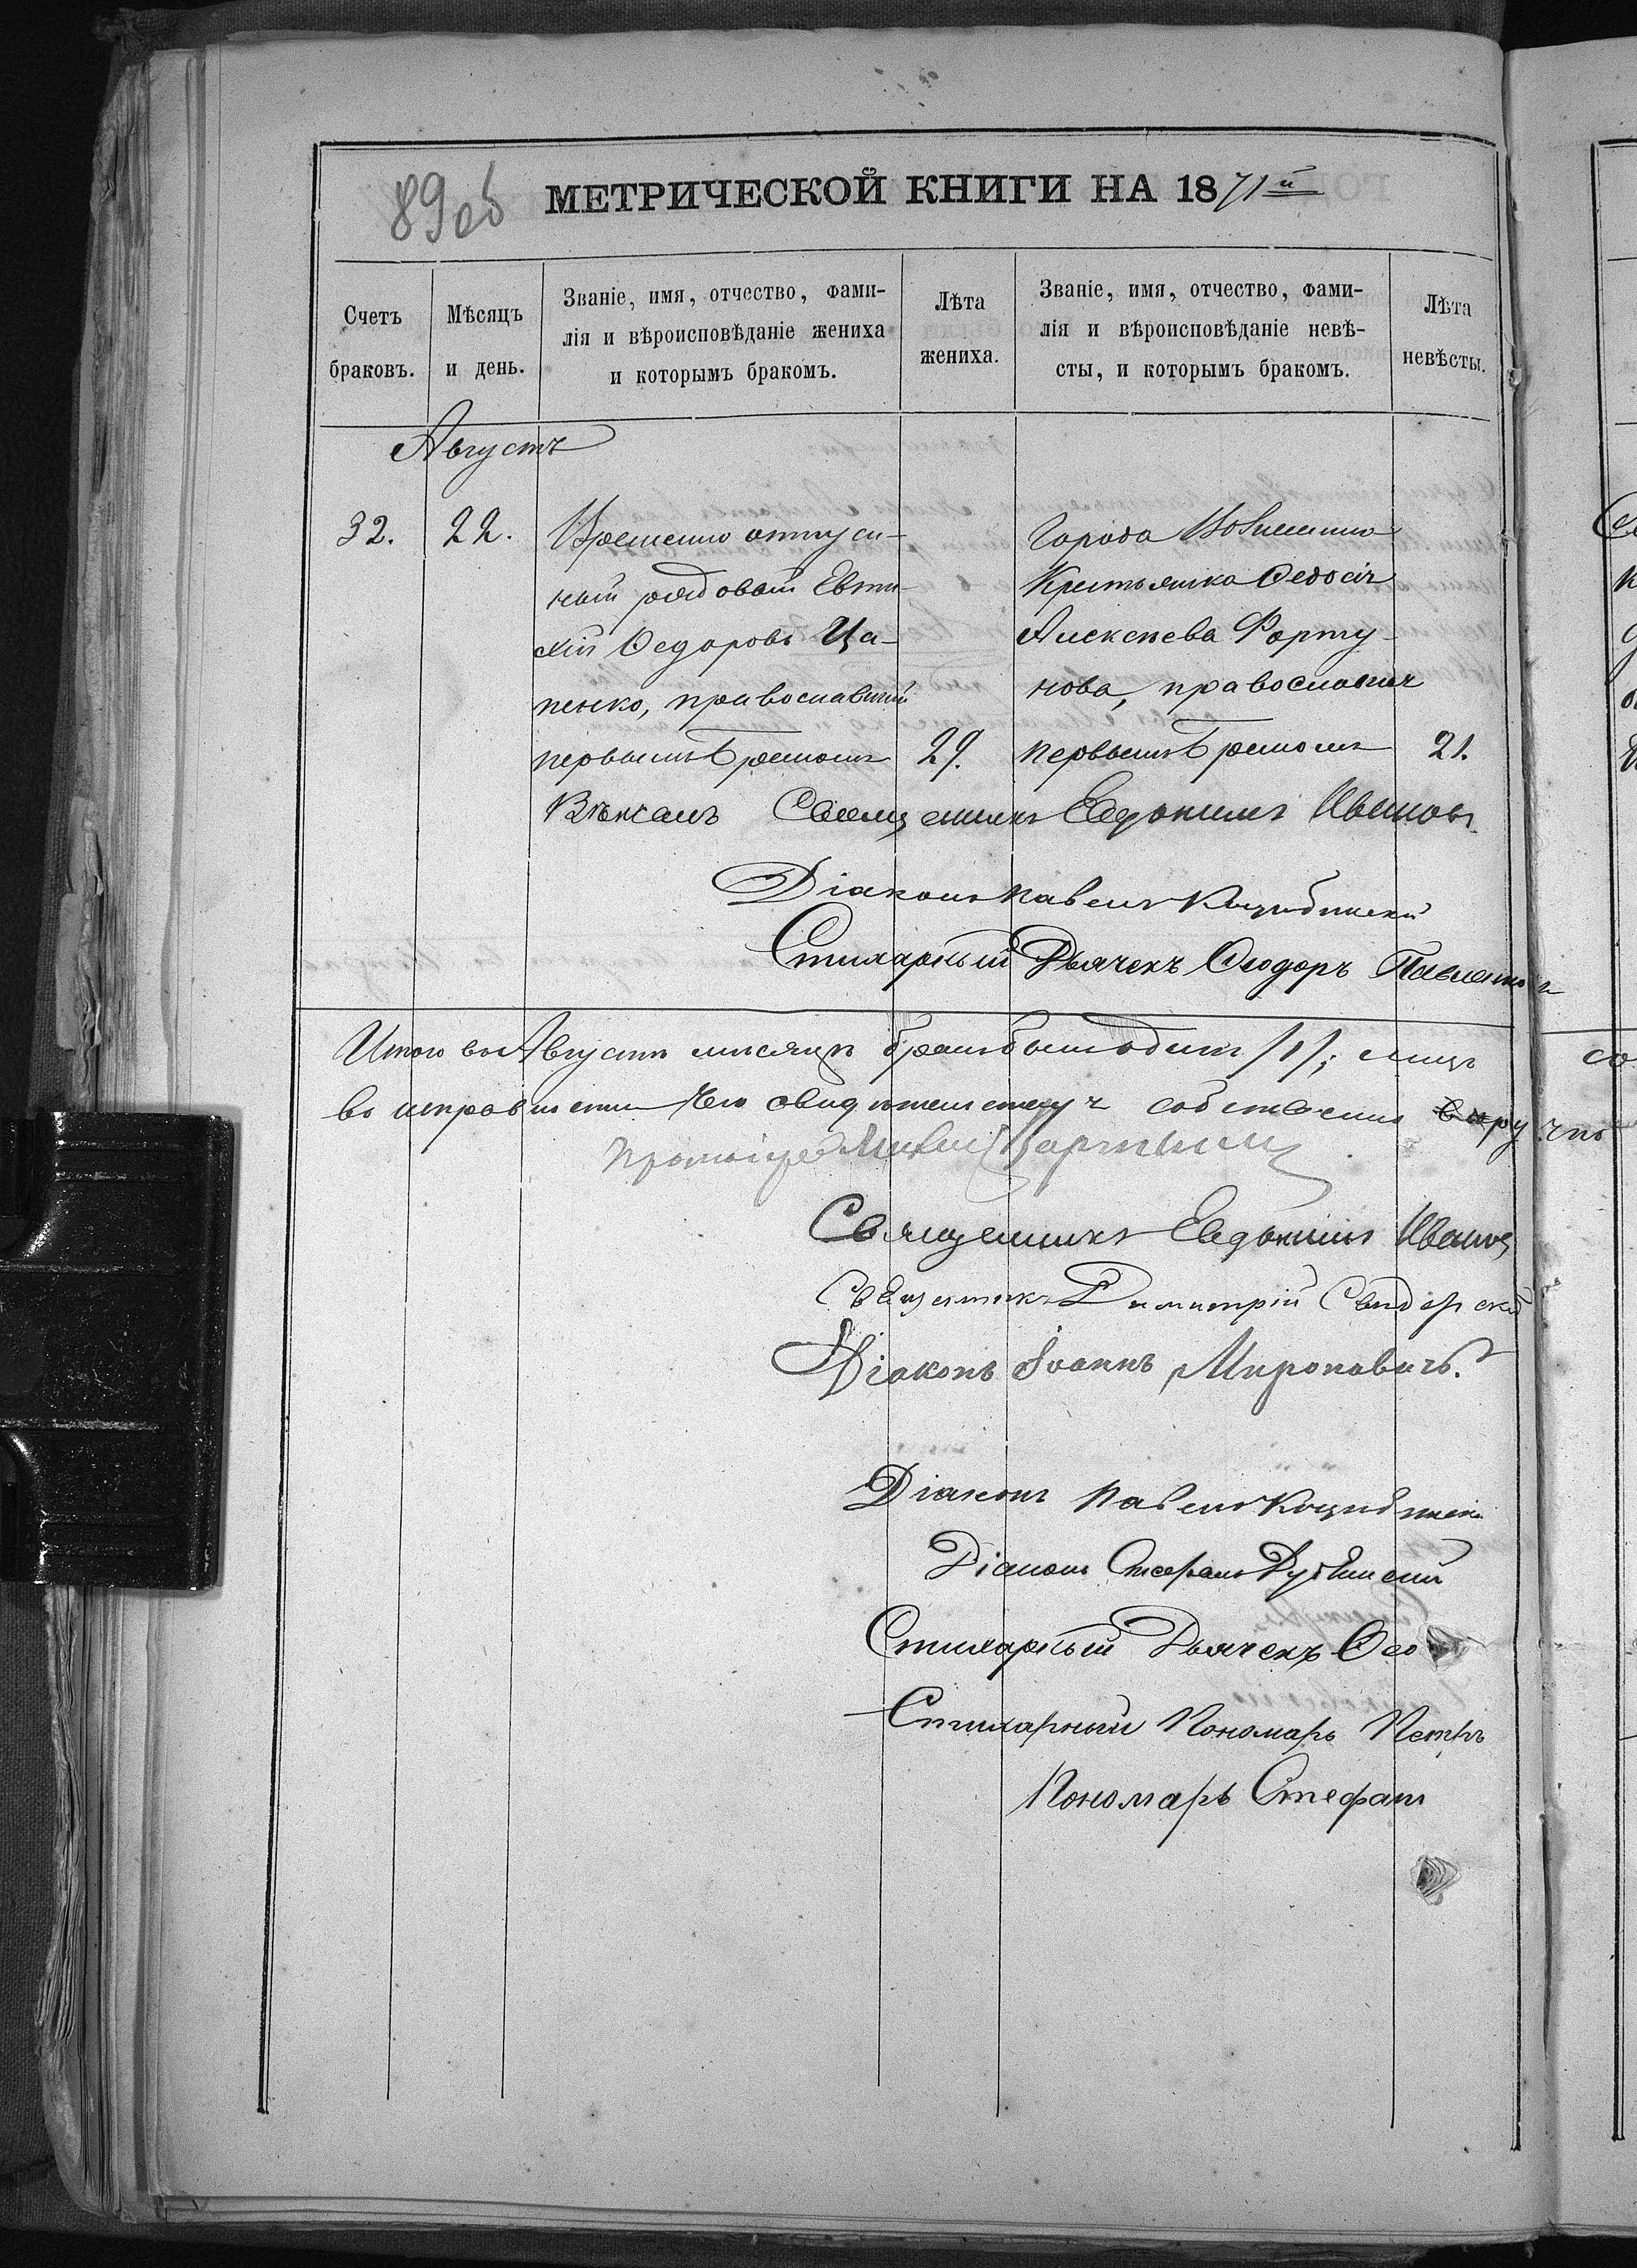 89 об
МЕТРИЧЕСКОЙ КНИГИ НА 1871й
Счетъ браковъ.
Мѣсяцъ и день.
Званіе, имя, отчество, фами-
лія и вѣроисповѣданіе жениха
и которымъ бракомъ.
Лѣта жениха.
Званіе, имя, отчество, фами-
лія и вѣроисповѣданіе невѣ-
сты, и которымъ бракомъ.
Лѣта невѣсты.
Августъ
32.
22.
Временно отпуск-
ный рядовый Евти-
хій Ѳедоровъ Ца-
пенко, православный
первымъ бракомъ
29.
Города
Крестьянка Ѳедосія
Алексѣева Форту-
нова, православная
первымъ бракомъ
21.
Вѣнчалъ Священникъ Евдокимъ Ивановъ
Діаконъ Павелъ
Стихарный Дьячекъ Ѳеодоръ
Итого въ Августѣ мѣсяцѣ бракъ былъ одинъ /1/;
въ исправности чего свидѣтельствуемъ собственноручно
Священникъ Евдокимъ Ивановъ
Священникъ Димитрій Свидерскій
Діаконъ Іоаннъ Мироновичъ.
Діаконъ Павелъ
Діаконъ Стефанъ
Стихарный Дьячекъ Ѳео
Стихарный Пономарь Петръ
Пономарь Стефанъ